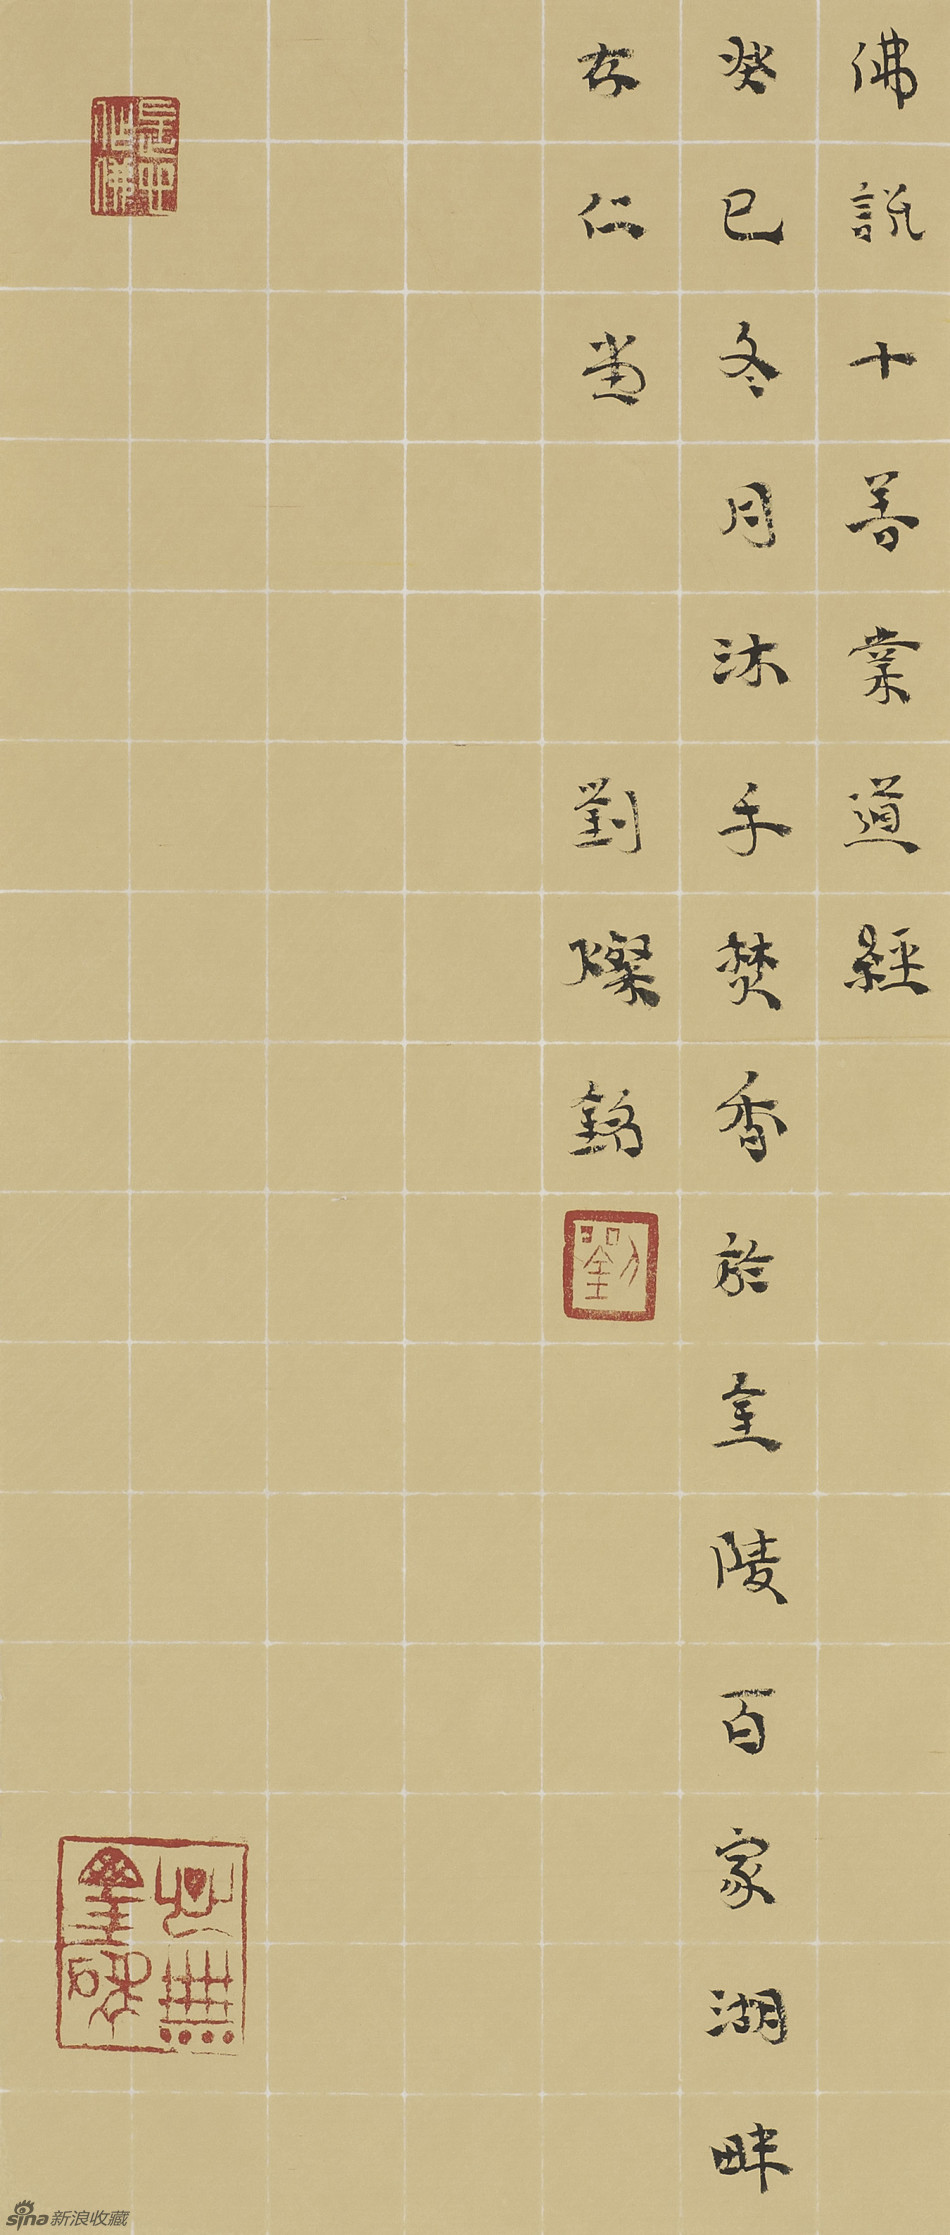 佛說十善業道經
癸巳冬月沐手焚香於金陵百家湖畔
存仁堂 劉燦銘
劉
是中作佛
sina新浪收藏